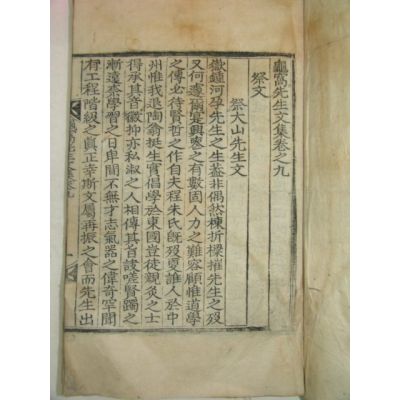 龜窩先生文集卷之九
祭文
祭大山先生文
嶽鍾河孕先生之生蓋非偶然棟折樑摧先生之歿
又何遽爾寔興喪之有數固人力之難容顧惟道學
之傳必待賢哲之作自夫程朱氏旣歿夏誰人於中
州惟我退陶翁挺生實倡學於東國豈徒親灸之士
得承其音徽抑亦私淑之人相傳其旨諛嗟賢躅之
漸遠柰學習之日卑間不無才志氣器之偉奇罕聞
有工程階級之眞正幸斯文屬再振之會而先生出